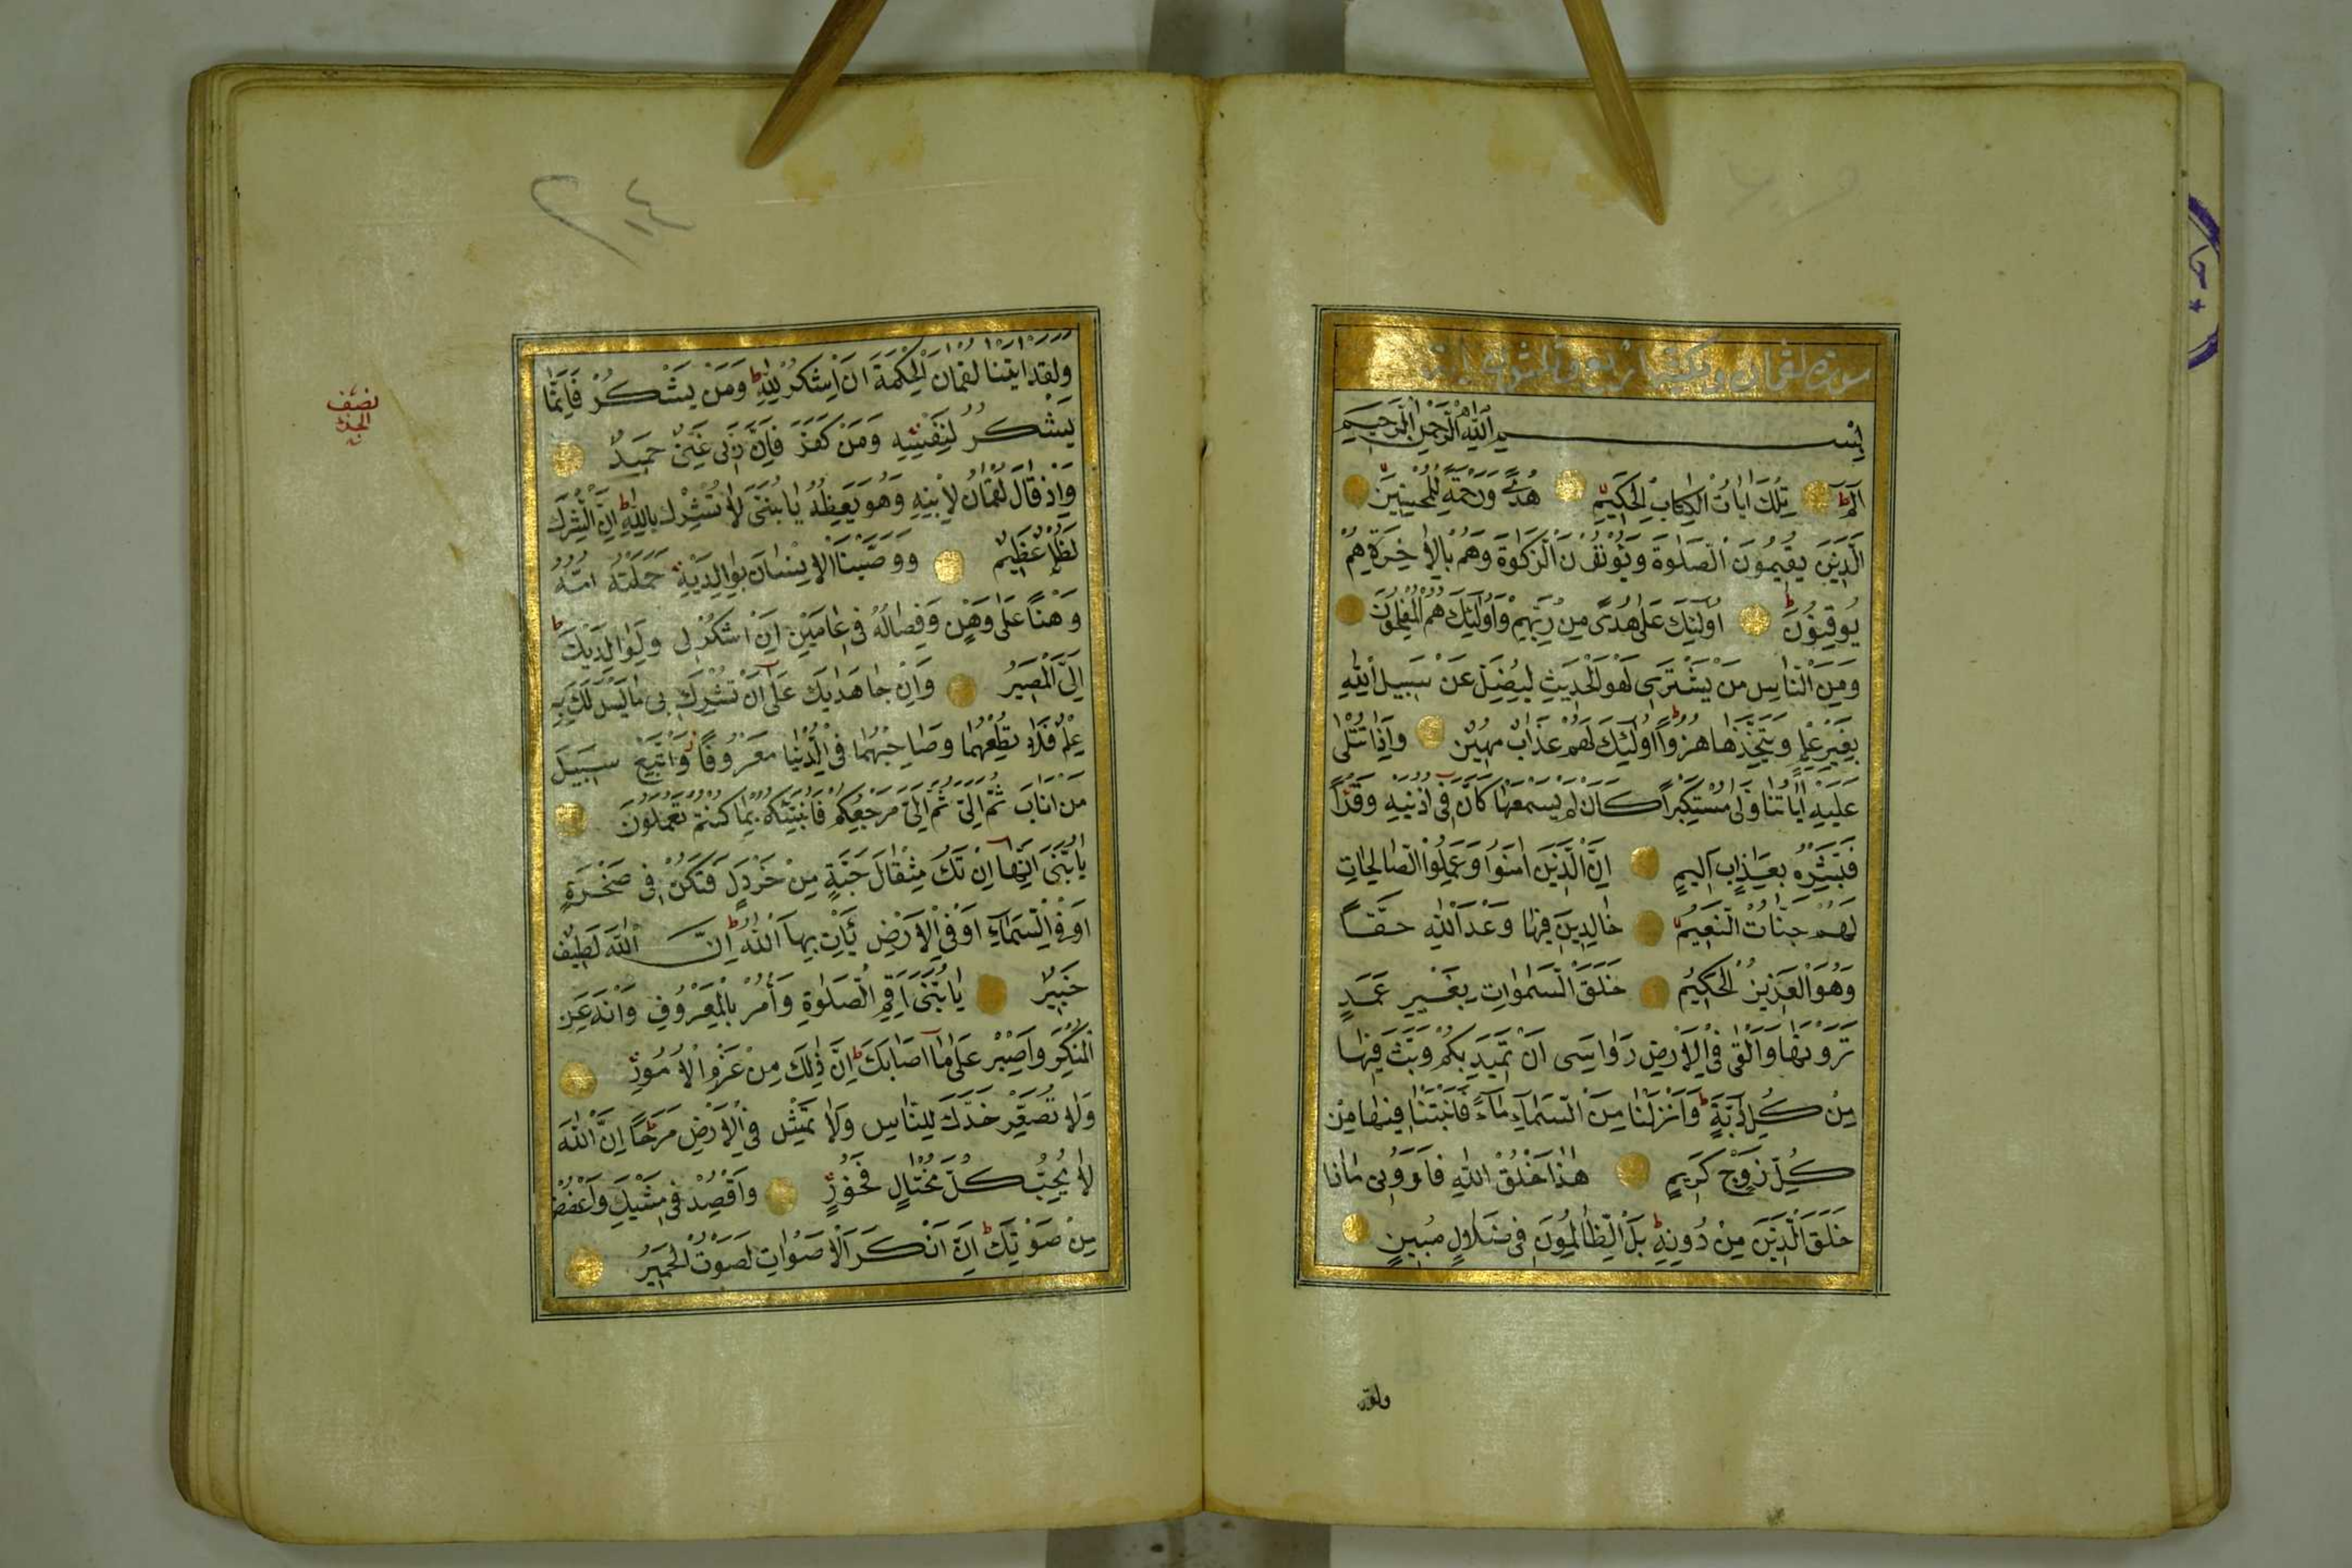 سورة لقمان
بِسْمِ اللّٰهِ الرَّحْمٰنِ الرَّحِيمِ
الٓمٓ ۞ تِلْكَ اٰيَاتُ الْكِتَابِ الْحَكِيمِ ۞ هُدًى وَرَحْمَةً لِلْمُحْسِنِينَ ۞
اَلَّذِينَ يُقِيمُونَ الصَّلٰوةَ وَيُؤْتُونَ الزَّكٰوةَ وَهُمْ بِالْاٰخِرَةِ هُمْ
يُوقِنُونَ ۞ اُولٰئِكَ عَلٰى هُدًى مِنْ رَبِّهِمْ وَاُولٰئِكَ هُمُ الْمُفْلِحُونَ ۞
وَمِنَ النَّاسِ مَنْ يَشْتَرِى لَهْوَ الْحَدِيثِ لِيُضِلَّ عَنْ سَبِيلِ اللّٰهِ
بِغَيْرِ عِلْمٍ وَيَتَّخِذَهَا هُزُوًا اُولٰئِكَ لَهُمْ عَذَابٌ مُهِينٌ ۞ وَاِذَا تُتْلٰى
عَلَيْهِ اٰيَاتُنَا وَلّٰى مُسْتَكْبِرًا كَاَنْ لَمْ يَسْمَعْهَا كَاَنَّ فِى اُذُنَيْهِ وَقْرًا
فَبَشِّرْهُ بِعَذَابٍ اَلِيمٍ ۞ اِنَّ الَّذِينَ اٰمَنُوا وَعَمِلُوا الصَّالِحَاتِ
لَهُمْ جَنَّاتُ النَّعِيمِ ۞ خَالِدِينَ فِيهَا وَعْدَ اللّٰهِ حَقًّا
وَهُوَ الْعَزِيزُ الْحَكِيمُ ۞ خَلَقَ السَّمٰوَاتِ بِغَيْرِ عَمَدٍ
تَرَوْنَهَا وَاَلْقٰى فِى الْاَرْضِ رَوَاسِىَ اَنْ تَمِيدَ بِكُمْ وَبَثَّ فِيهَا
مِنْ كُلِّ دَابَّةٍ وَاَنْزَلْنَا مِنَ السَّمَاءِ مَاءً فَاَنْبَتْنَا فِيهَا مِنْ
كُلِّ زَوْجٍ كَرِيمٍ ۞ هٰذَا خَلْقُ اللّٰهِ فَاَرُونِى مَاذَا
خَلَقَ الَّذِينَ مِنْ دُونِهِ بَلِ الظَّالِمُونَ فِى ضَلَالٍ مُبِينٍ ۞
ولقد
٢١٤
وَلَقَدْ اٰتَيْنَا لُقْمَانَ الْحِكْمَةَ اَنِ اشْكُرْ لِلّٰهِ وَمَنْ يَشْكُرْ فَاِنَّمَا
يَشْكُرُ لِنَفْسِهِ وَمَنْ كَفَرَ فَاِنَّ رَبِّى غَنِىٌّ حَمِيدٌ ۞
وَاِذْ قَالَ لُقْمَانُ لِابْنِهِ وَهُوَ يَعِظُهُ يَا بُنَىَّ لَا تُشْرِكْ بِاللّٰهِ اِنَّ الشِّرْكَ
لَظُلْمٌ عَظِيمٌ ۞ وَوَصَّيْنَا الْاِنْسَانَ بِوَالِدَيْهِ حَمَلَتْهُ اُمُّهُ
وَهْنًا عَلٰى وَهْنٍ وَفِصَالُهُ فِى عَامَيْنِ اَنِ اشْكُرْ لِى وَلِوَالِدَيْكَ
اِلَىَّ الْمَصِيرُ ۞ وَاِنْ جَاهَدَاكَ عَلٰى اَنْ تُشْرِكَ بِى مَا لَيْسَ لَكَ بِهِ
عِلْمٌ فَلَا تُطِعْهُمَا وَصَاحِبْهُمَا فِى الدُّنْيَا مَعْرُوفًا وَاتَّبِعْ سَبِيلَ
مَنْ اَنَابَ ثُمَّ اِلَىَّ ثُمَّ اِلَىَّ مَرْجِعُكُمْ فَاُنَبِّئُكُمْ بِمَا كُنْتُمْ تَعْمَلُونَ ۞
يَا بُنَىَّ اِنَّهَا اِنْ تَكُ مِثْقَالَ حَبَّةٍ مِنْ خَرْدَلٍ فَتَكُنْ فِى صَخْرَةٍ
اَوْ فِى السَّمَاءِ اَوْ فِى الْاَرْضِ يَأْتِ بِهَا اللّٰهُ اِنَّ اللّٰهَ لَطِيفٌ
خَبِيرٌ ۞ يَا بُنَىَّ اَقِمِ الصَّلٰوةَ وَأْمُرْ بِالْمَعْرُوفِ وَانْهَ عَنِ
الْمُنْكَرِ وَاصْبِرْ عَلٰى مَا اَصَابَكَ اِنَّ ذٰلِكَ مِنْ عَزْمِ الْاُمُورِ ۞
وَلَا تُصَعِّرْ خَدَّكَ لِلنَّاسِ وَلَا تَمْشِ فِى الْاَرْضِ مَرَحًا اِنَّ اللّٰهَ
لَا يُحِبُّ كُلَّ مُخْتَالٍ فَخُورٍ ۞ وَاقْصِدْ فِى مَشْيِكَ وَاغْضُضْ
مِنْ صَوْتِكَ اِنَّ اَنْكَرَ الْاَصْوَاتِ لَصَوْتُ الْحَمِيرِ ۞
نصف
الحزب